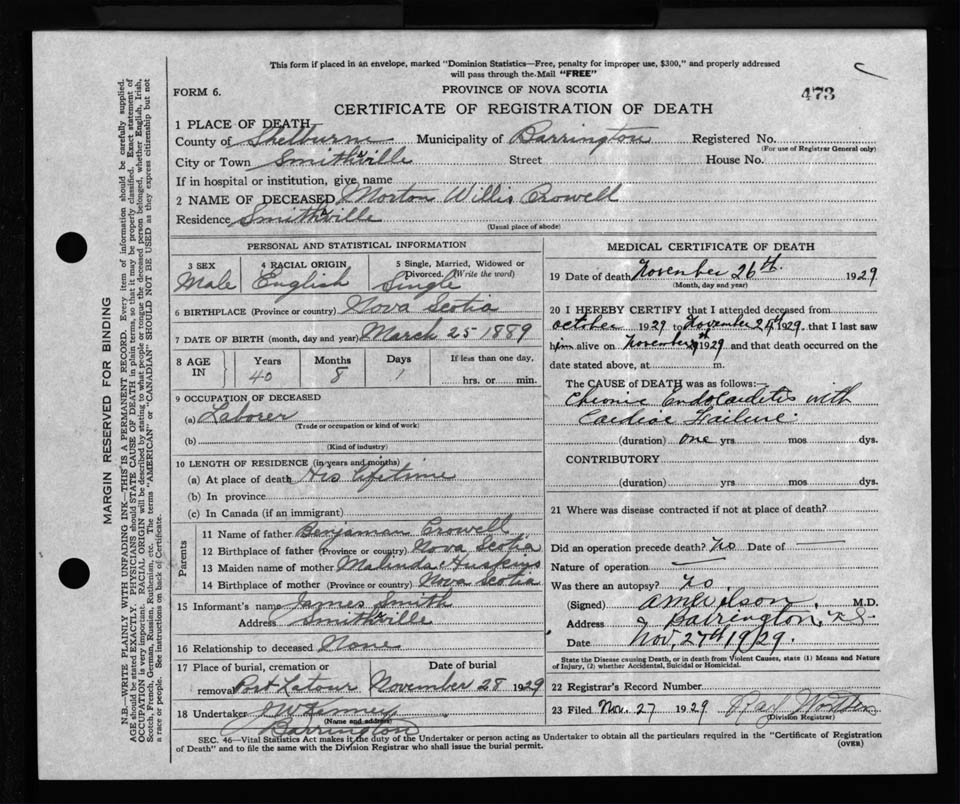 This form if placed in an envelope, marked "Dominion Statistics—Free, penalty for improper use, $300," and properly addressed
will pass through the Mail "FREE"
FORM 6.
PROVINCE OF NOVA SCOTIA
473
CERTIFICATE OF REGISTRATION OF DEATH
1 PLACE OF DEATH
County of Shelburne Municipality of Barrington Registered No.
(For use of Registrar General only)
City or Town Smithville Street House No.
If in hospital or institution, give name
2 NAME OF DECEASED Morton Willis Crowell
Residence Smithville
(Usual place of abode)
PERSONAL AND STATISTICAL INFORMATION
3 SEX 4 RACIAL ORIGIN 5 Single, Married, Widowed or
Divorced. (Write the word)
Male English Single
6 BIRTHPLACE (Province or country) Nova Scotia
7 DATE OF BIRTH (month, day and year) March 25 1889
8 AGE IN Years Months Days If less than one day,
40 8 1 hrs. or min.
9 OCCUPATION OF DECEASED
(a) Laborer
(Trade or occupation or kind of work)
(b)
(Kind of industry)
10 LENGTH OF RESIDENCE (in years and months)
(a) At place of death His lifetime
(b) In province
(c) In Canada (if an immigrant)
Parents
11 Name of father Benjaman Crowell
12 Birthplace of father (Province or country) Nova Scotia
13 Maiden name of mother Malinda Huskins
14 Birthplace of mother (Province or country) Nova Scotia
15 Informant's name James Smith
Address Smithville
16 Relationship to deceased None
17 Place of burial, cremation or Date of burial
removal Port Latour November 28 1929
18 Undertaker Kenney
(Name and address)
Barrington
MEDICAL CERTIFICATE OF DEATH
19 Date of death November 26th. 1929
(Month, day and year)
20 I HEREBY CERTIFY that I attended deceased from
October 1929 to November 24th 1929. that I last saw
him alive on November 1929 and that death occurred on the
date stated above, at m.
The CAUSE of DEATH was as follows:—
Chronic Endocarditis with
Cardiac Failure.
(duration) one yrs. mos dys.
CONTRIBUTORY
(duration) yrs. mos. dys.
21 Where was disease contracted if not at place of death?
Did an operation precede death? No Date of —
Nature of operation —
Was there an autopsy? No
(Signed) Wilson, M.D.
Address Barrington, N.S.
Date Nov. 27th 1929.
State the Disease causing Death, or in death from Violent Causes, state (1) Means and Nature
of Injury, (2) whether Accidental, Suicidal or Homicidal.
22 Registrar's Record Number
23 Filed Nov. 27 1929
(Division Registrar)
SEC. 46—Vital Statistics Act makes it the duty of the Undertaker or person acting as Undertaker to obtain all the particulars required in the "Certificate of Registration
of Death" and to file the same with the Division Registrar who shall issue the burial permit.
(OVER)
MARGIN RESERVED FOR BINDING
N.B.—WRITE PLAINLY WITH UNFADING INK—THIS IS A PERMANENT RECORD. Every item of information should be carefully supplied.
AGE should be stated EXACTLY. PHYSICIANS should STATE CAUSE OF DEATH in plain terms, so that it may be properly classified. Exact statement of
OCCUPATION is very important. RACIAL ORIGIN will be described by stating to what people or tongue the deceased person belonged, whether English, Irish,
Scotch, French, German, Russian, Ruthenian, etc. The terms "AMERICAN" or "CANADIAN" SHOULD NOT BE USED as they express citizenship but not
a race or people. See instructions on back of Certificate.